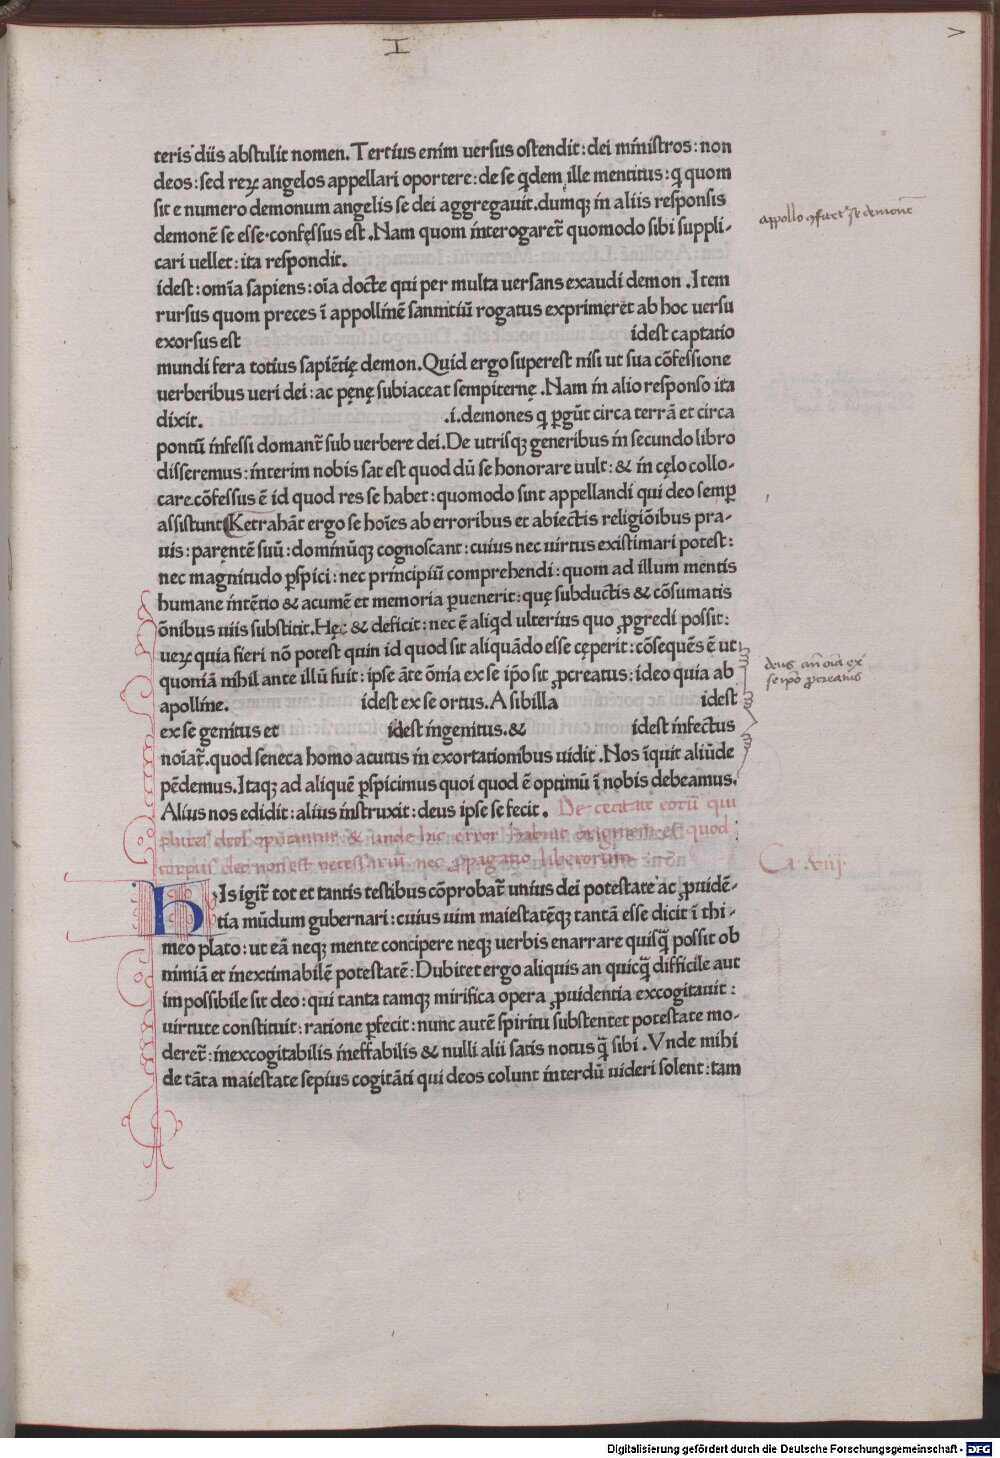 I
teris diis abstulit nomen. Tertius enim uersus ostendit: dei mīnistros: non
deos: sed reꝝ angelos appellari oportere: de se q̄dem ille mentitus: q̄ quom
sit e numero demonum angelis se dei aggregauit. dumqꝫ in aliis responsis
demonē se esse· confęssus est. Nam quom interogaret̄ quomodo sibi suppli-
cari uellet: ita respondit.
idest: omīa sapiens: oīa docte qui per multa uersans exaudi demon. Item
rursus quom preces ī appollīnē sannitiū rogatus exprimeret̄ ab hoc uersu
exorsus est idest captatio
mundi fera totius sapiētię demon. Quid ergo superest nisi ut sua cōfessione
uerberibus ueri dei: ac pęnę subiaceat sempiternę. Nam in alio respōso ita
dixit. .i. demones q̄ ꝑgūt circa terrā et circa
pontū infessi domant̄ sub uerbere dei. De utrisqꝫ generibus in secundo libro
disseremus: interim nobis sat est quod dū se honorare uult: & in cęlo collo-
care cōfessus ē id quod res se habet: quomodo sint appellandi qui deo semꝑ
assistunt Retrahāt ergo se hoīes ab erroribus et abiectis religiōibus pra-
uis: parentē suū: dominūqꝫ cognoscant: cuius nec uirtus existimari potest:
nec magnitudo ꝑspici: nec principiū comprehendi: quom ad illum mentis
humane intētio & acumē et memoria ꝑuenerit: quę subductis & cōsumatis
ōnibus uiis substitit. Hęc & deficit: nec ē aliq̄d ulterius quo ꝓgredi possit:
ueꝝ quia fieri nō potest quin id quod sit aliquādo esse cęperit: cōsequēs ē ut
quoniā nihil ante illū fuit: ipse āte ōmia ex se ip̄o sit ꝓcreatus: ideo quia ab
apolline. idest ex se ortus. A sibilla idest
ex se genitus et idest ingenitus. & idest infectus
noīat̄. quod seneca homo acutus in exortationibus uidit. Nos īquit aliūde
pēdemus. Itaqꝫ ad aliquē ꝑspicimus quoi quod ē optimū ī nobis debeamus.
Alius nos edidit: alius instruxit: deus ipse se fecit. De cecitate eorū qui
plures deos oputantur & unde hic error habuit originem et quod
corpus deo non est necessariū nec ꝓpagatio liberorum
Ca. viij.
HIs igit̄ tot et tantis testibus cōprobat̄ unius dei potestate ac ꝓuidē-
tia mūdum gubernari: cuius uim maiestatēqꝫ tantā esse dicit ī thi-
meo plato: ut eā neqꝫ mente concipere neqꝫ uerbis enarrare quisq̄ possit ob
nimiā et inextimabilē potestatē: Dubitet ergo aliquis an quicq̄ difficile aut
impossibile sit deo: qui tanta tamqꝫ mirifica opera ꝓuidentia excogitauit:
uirtute constituit: ratione ꝑfecit: nunc autē spiritu substentet potestate mo-
deret̄: inexcogitabilis ineffabilis & nulli alii satis notus q̄ sibi. Vnde mihi
de tāta maiestate sepius cogitāti qui deos colunt interdū uideri solent: tam
appollo ꝯfitet̄ se demonē
deus an̄ oīa ex
se ip̄o ꝓcreatus
Digitalisierung gefördert durch die Deutsche Forschungsgemeinschaft - DFG